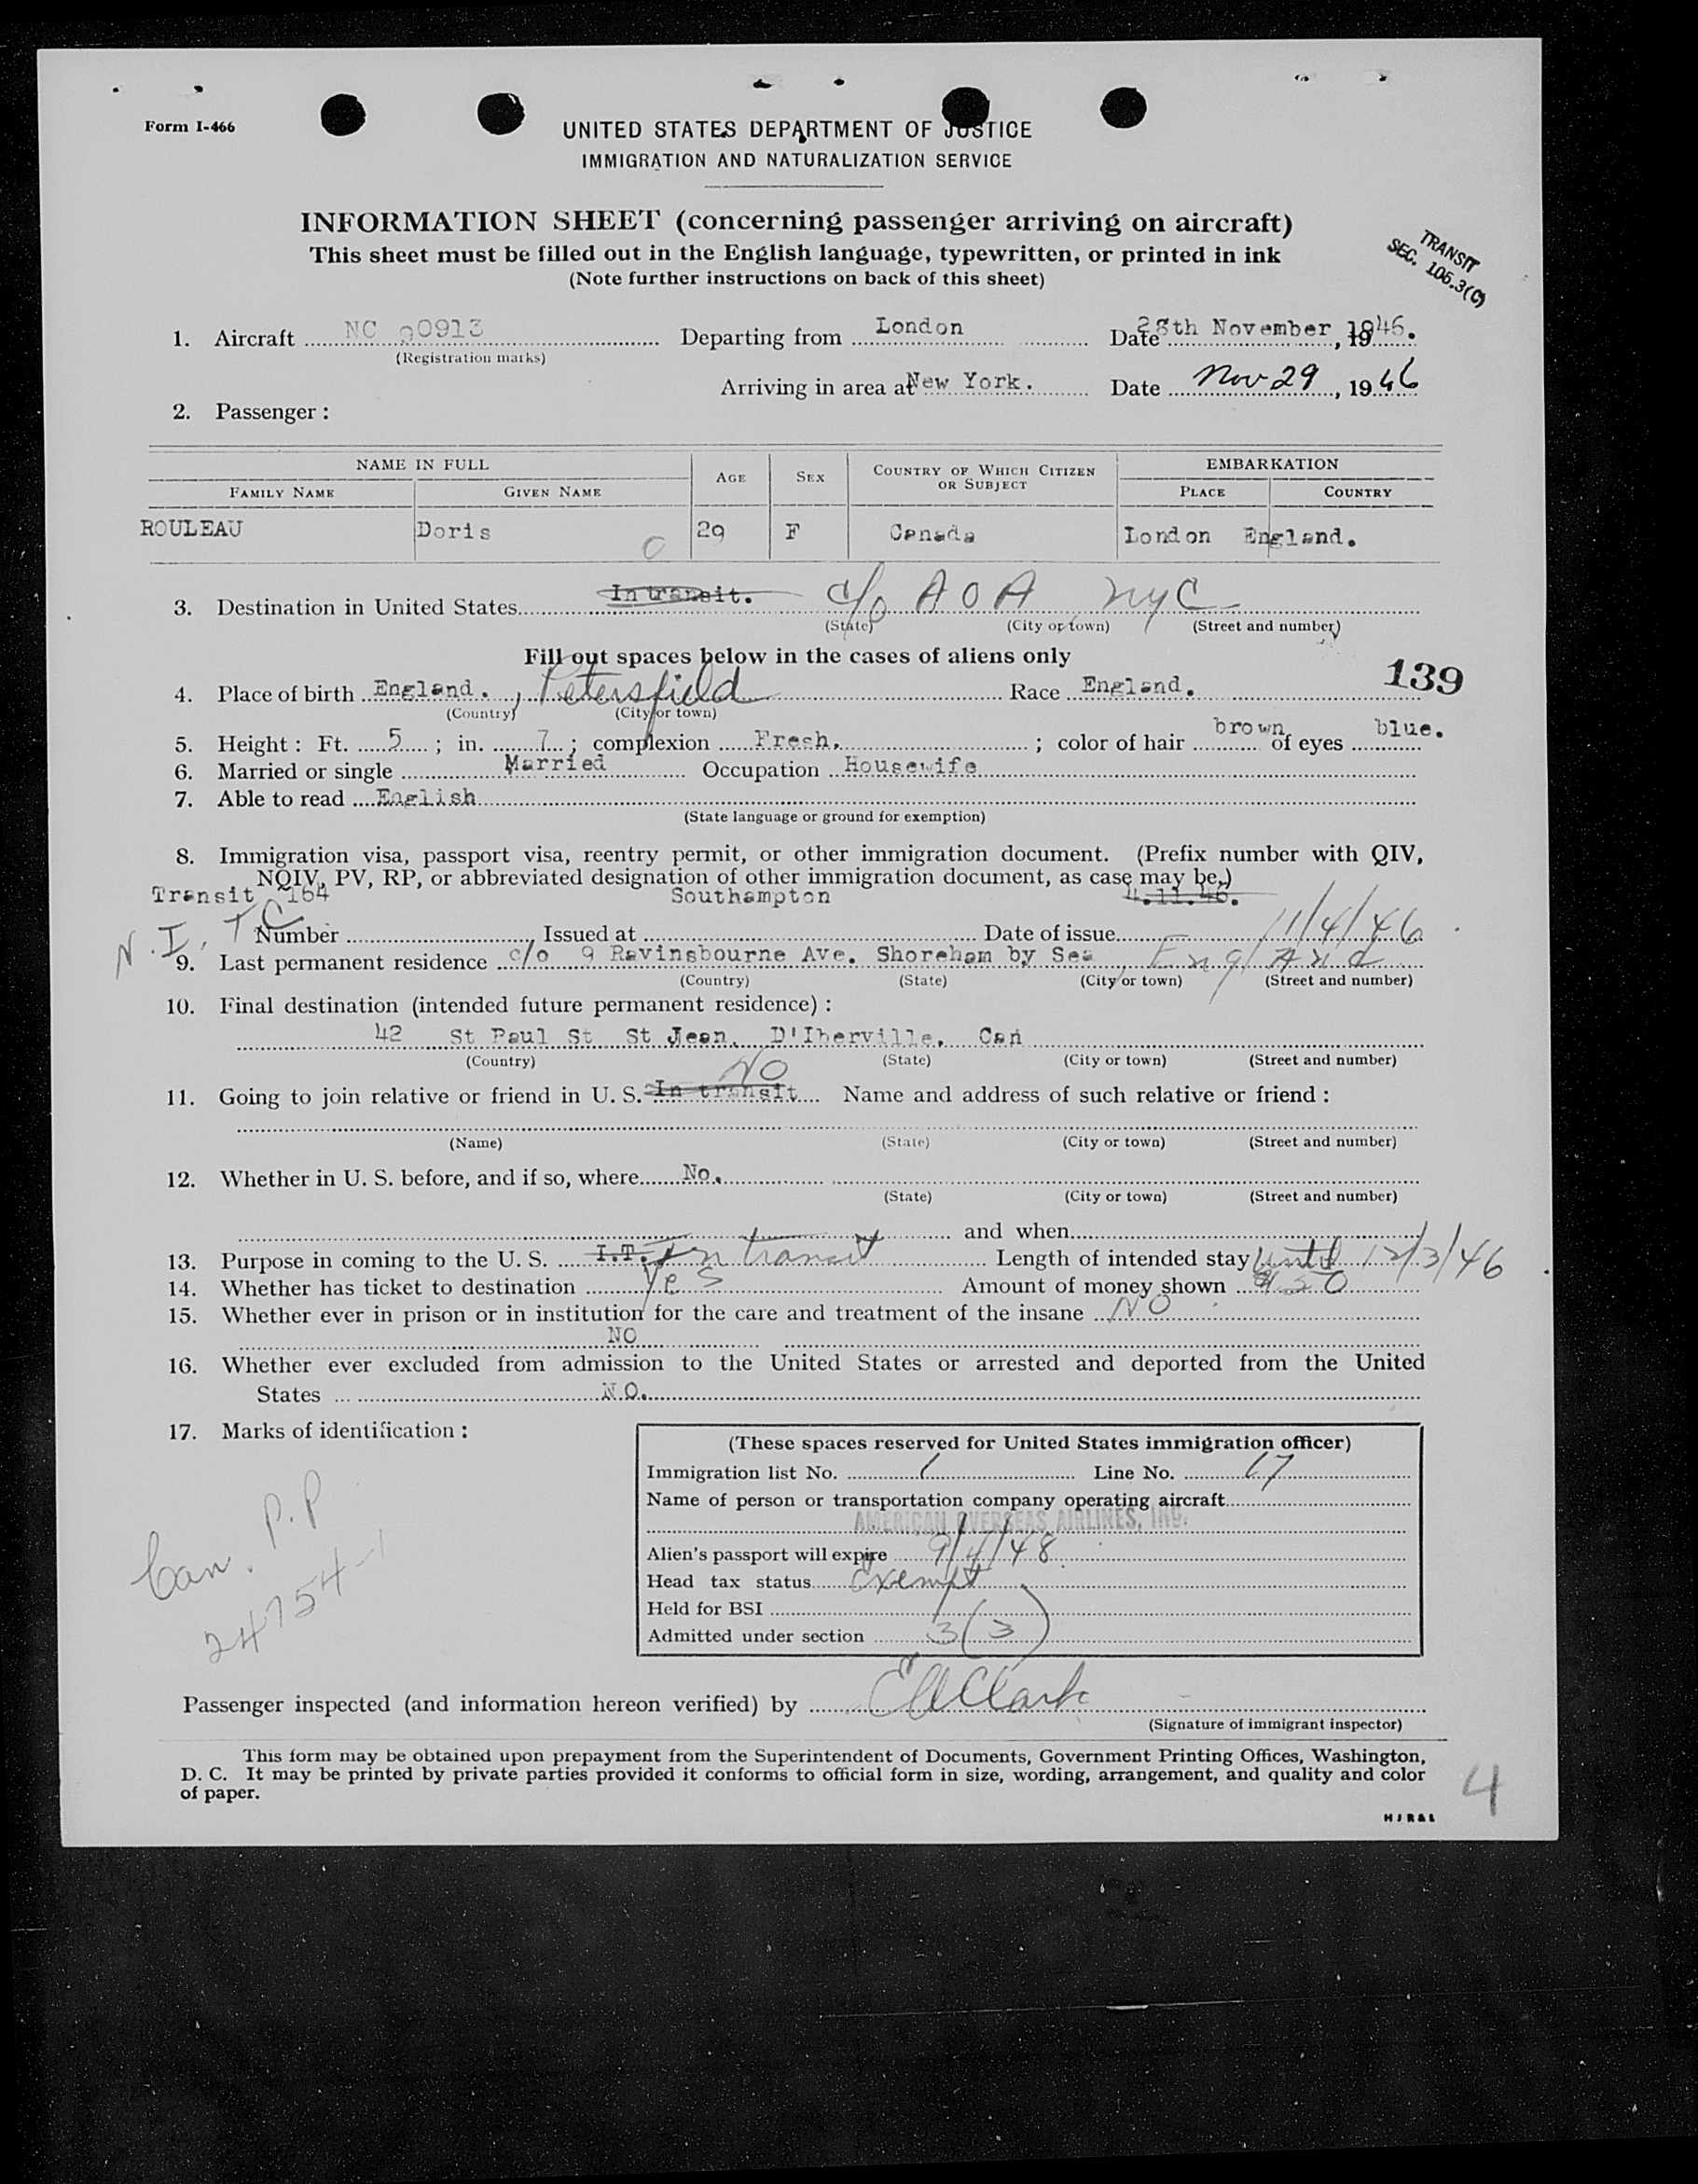 Form I-466
UNITED STATES DEPARTMENT OF JUSTICE
IMMIGRATION AND NATURALIZATION SERVICE
INFORMATION SHEET (concerning passenger arriving on aircraft)
This sheet must be filled out in the English language, typewritten, or printed in ink
(Note further instructions on back of this sheet)
TRANSIT
SEC. 106.3(C)
1. Aircraft NC 90913 Departing from London Date 28th November, 1946.
(Registration marks)
Arriving in area at New York. Date Nov 29, 1946
2. Passenger:
NAME IN FULL AGE SEX COUNTRY OF WHICH CITIZEN OR SUBJECT EMBARKATION
FAMILY NAME GIVEN NAME PLACE COUNTRY
ROULEAU Doris 29 F Canada London England.
3. Destination in United States In transit. c/o A O A NYC
(State) (City or town) (Street and number)
Fill out spaces below in the cases of aliens only
139
4. Place of birth England. , Petersfield Race England.
(Country) (City or town)
5. Height: Ft. 5; in. 7; complexion Fresh. ; color of hair brown of eyes blue.
6. Married or single Married Occupation Housewife
7. Able to read English
(State language or ground for exemption)
8. Immigration visa, passport visa, reentry permit, or other immigration document. (Prefix number with QIV,
NQIV, PV, RP, or abbreviated designation of other immigration document, as case may be.)
Transit 164 Southampton 4.11.46.
N.I. T C Number Issued at Date of issue 11/4/46
9. Last permanent residence c/o 9 Ravinsbourne Ave. Shoreham by Sea England
(Country) (State) (City or town) (Street and number)
10. Final destination (intended future permanent residence):
42 St Paul St St Jean, D'Iberville, Can
(Country) (State) (City or town) (Street and number)
NO
11. Going to join relative or friend in U. S. In transit Name and address of such relative or friend:
(Name) (State) (City or town) (Street and number)
12. Whether in U. S. before, and if so, where No.
(State) (City or town) (Street and number)
and when
13. Purpose in coming to the U. S. I.T. In transit Length of intended stay Until 12/3/46
14. Whether has ticket to destination Yes Amount of money shown
15. Whether ever in prison or in institution for the care and treatment of the insane NO
NO
16. Whether ever excluded from admission to the United States or arrested and deported from the United
States NO.
17. Marks of identification:
Can. P.P
24754-1
(These spaces reserved for United States immigration officer)
Immigration list No. 1 Line No. 17
Name of person or transportation company operating aircraft
AMERICAN OVERSEAS AIRLINES, INC.
Alien's passport will expire 9/4/48
Head tax status Exempt
Held for BSI
Admitted under section 3(3)
Passenger inspected (and information hereon verified) by Clark
(Signature of immigrant inspector)
This form may be obtained upon prepayment from the Superintendent of Documents, Government Printing Offices, Washington,
D. C. It may be printed by private parties provided it conforms to official form in size, wording, arrangement, and quality and color
of paper.
4
HJR&L